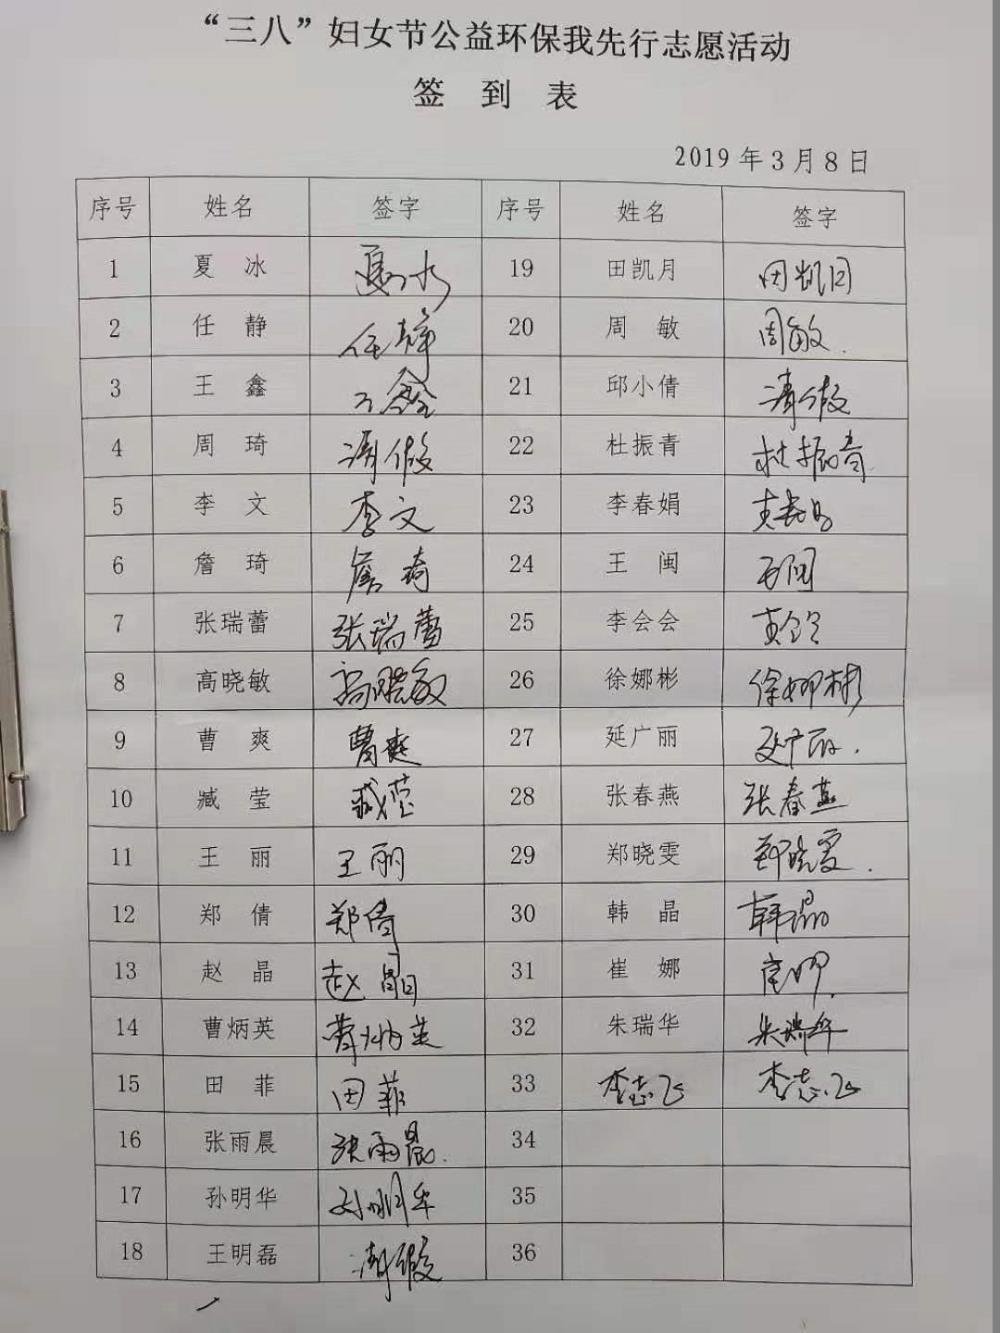 “三八”妇女节公益环保我先行志愿活动
签 到 表
2019年3月8日
序号 姓名 签字 序号 姓名 签字
1 夏 冰 夏冰 19 田凯月 田凯月
2 任 静 任静 20 周 敏 周敏.
3 王 鑫 王鑫 21 邱小倩 请假
4 周 琦 请假 22 杜振青 杜振青
5 李 文 李文 23 李春娟 李春娟
6 詹 琦 詹琦 24 王 闽 王闽
7 张瑞蕾 张瑞蕾 25 李会会 李会会
8 高晓敏 高晓敏 26 徐娜彬 徐娜彬
9 曹 爽 曹爽 27 延广丽 延广丽.
10 臧 莹 臧莹 28 张春燕 张春燕
11 王 丽 王丽 29 郑晓雯 郑晓雯.
12 郑 倩 郑倩 30 韩 晶 韩晶
13 赵 晶 赵晶 31 崔 娜 崔娜.
14 曹炳英 曹炳英 32 朱瑞华 朱瑞华
15 田 菲 田菲 33 李志飞 李志飞
16 张雨晨 张雨晨. 34
17 孙明华 孙明华 35
18 王明磊 请假 36